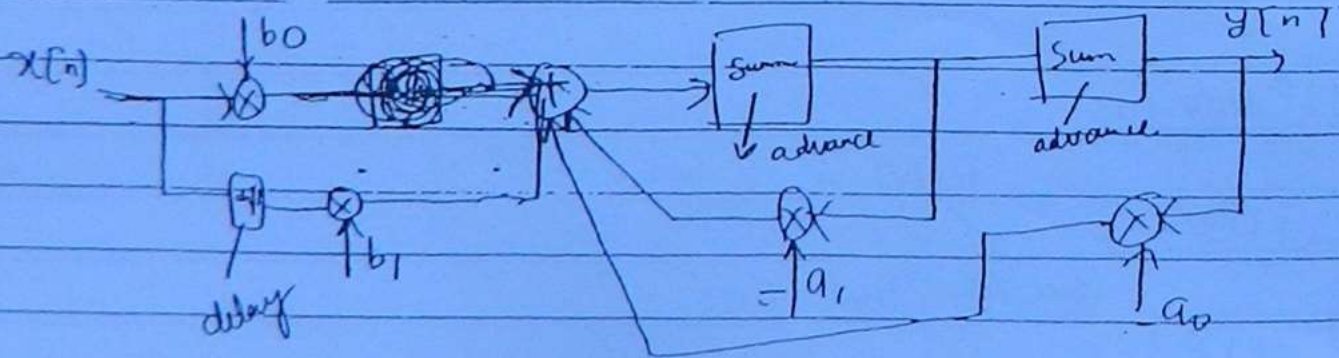 x[n]
b0
+
Sum
advance
Sum
advance
y[n]
delay
b1
-a1
a0